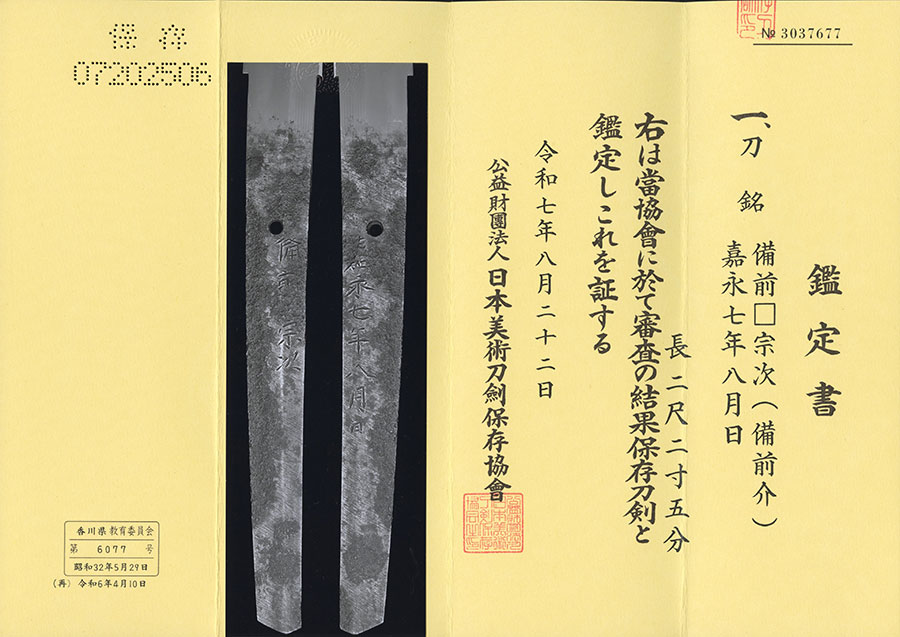 № 3037677
鑑定書
一、刀 銘 備前□宗次(備前介)
嘉永七年八月日
長 二尺二寸五分
右は當協會に於て審査の結果保存刀剣と
鑑定しこれを証する
令和七年八月二十二日
公益財團法人 日本美術刀劍保存協會
嘉永七年八月日
備前 宗次
保存
07202506
香川県教育委員会
第 6077 号
昭和32年5月29日
(再) 令和6年4月10日